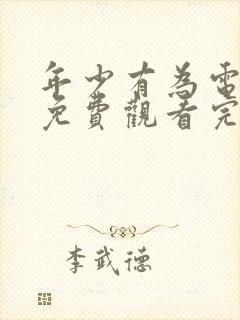 年少有為電
免費觀看完
李武德